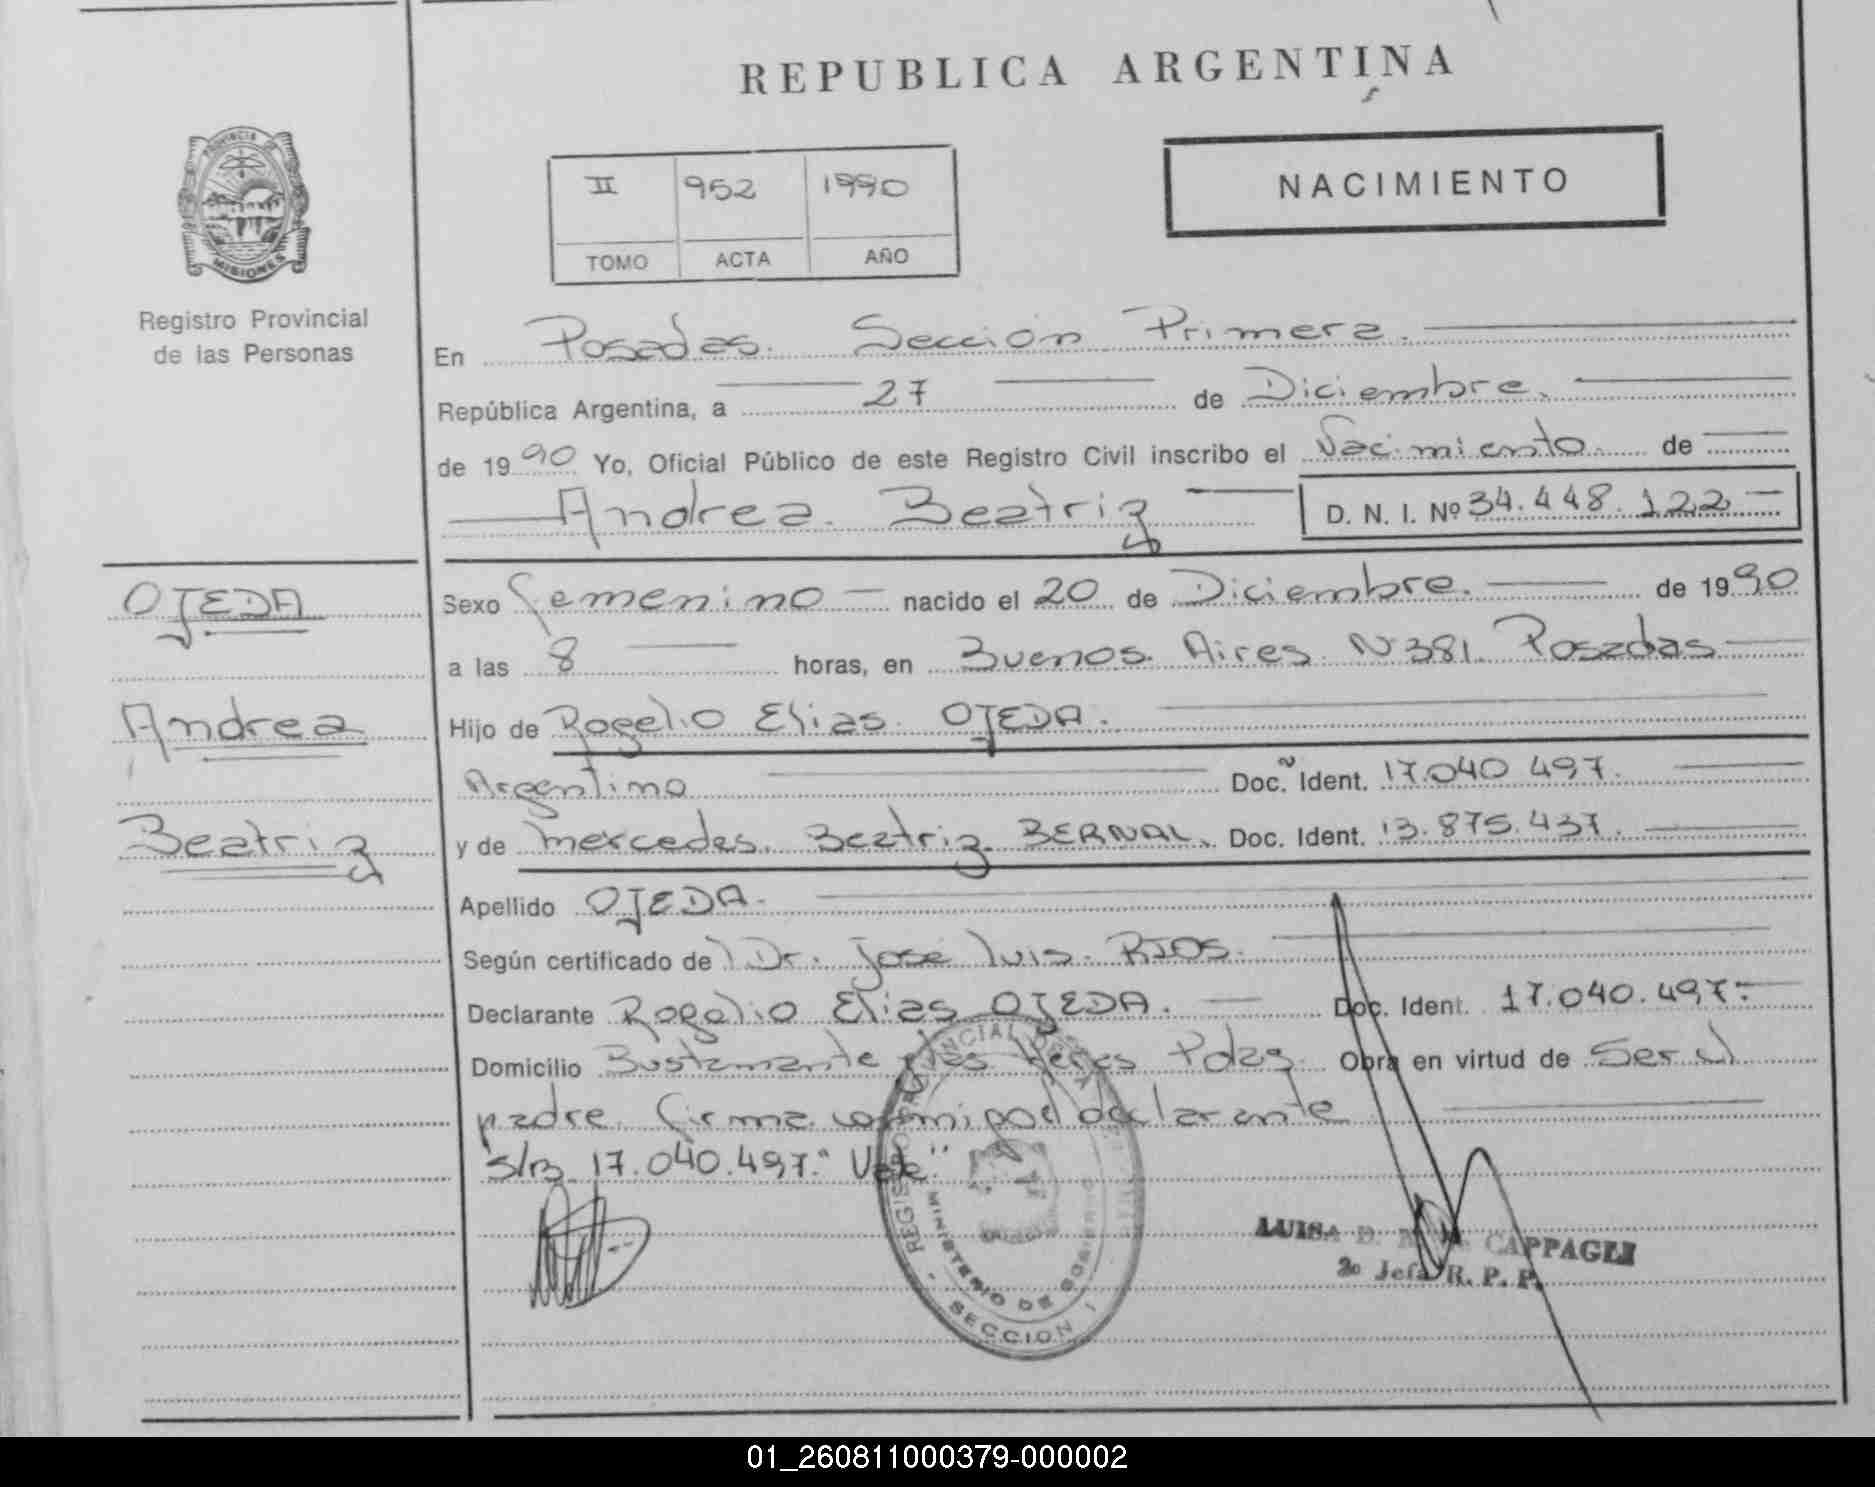 REPUBLICA ARGENTINA
PROVINCIA
MISIONES
Registro Provincial
de las Personas
II 952 1990
TOMO ACTA AÑO
NACIMIENTO
En Posadas. Sección Primera.
República Argentina, a 27 de Diciembre.
de 1990 Yo, Oficial Público de este Registro Civil inscribo el Nacimiento de
Andrea Beatriz D. N. I. Nº 34.448.122
OJEDA
Andrea
Beatriz
Sexo Femenino nacido el 20 de Diciembre. de 1990
a las 8 horas, en Buenos Aires Nº 381. Posadas
Hijo de Rogelio Elias. OJEDA.
Argentino Doc. Ident. 17.040.497.
y de Mercedes. Beatriz. BERNAL. Doc. Ident. 13.875.437.
Apellido OJEDA.
Según certificado de Dr. José Luis. RIOS.
Declarante Rogelio Elias OJEDA. Doc. Ident. 17.040.497.
Domicilio Bustamante Pdas. Obra en virtud de Ser el
padre. firma conmigo el declarante
S/B 17.040.497." Vale."
REGISTRO PROVINCIAL DE LAS PERSONAS
MINISTERIO DE GOBIERNO
SECCION I
LUISA D. CAPPAGLI
2º Jefa R. P. P.
01_260811000379-000002